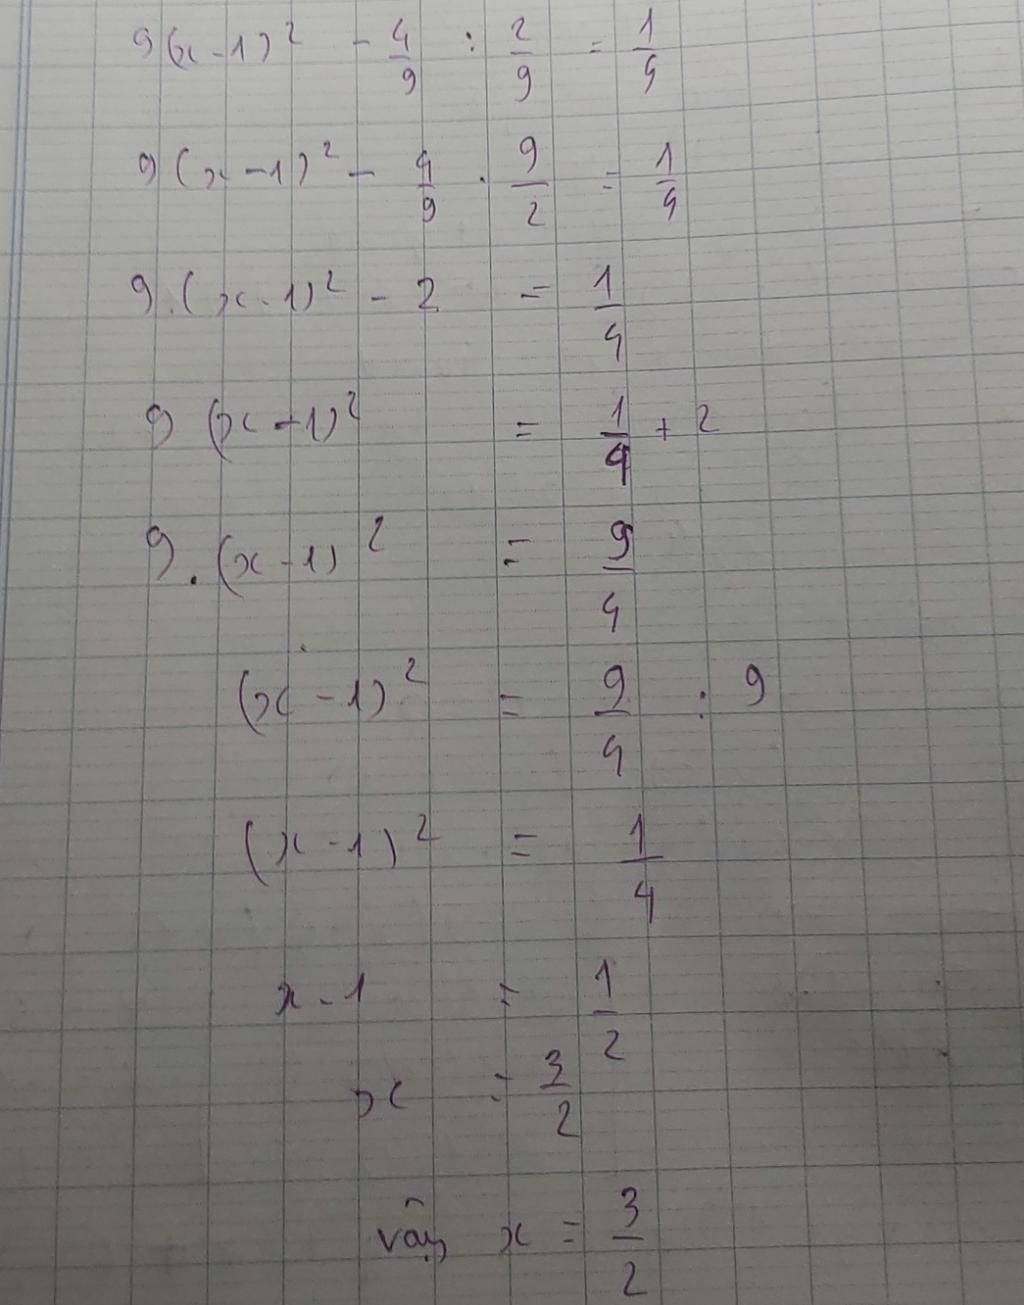 9(x-1)² - 4/9 : 2/9 = 1/4
9(x-1)² - 4/9 . 9/2 = 1/4
9.(x-1)² - 2 = 1/4
9(x-1)² = 1/4 + 2
9.(x-1)² = 9/4
(x-1)² = 9/4 : 9
(x-1)² = 1/4
x-1 = 1/2
x = 3/2
vậy x = 3/2